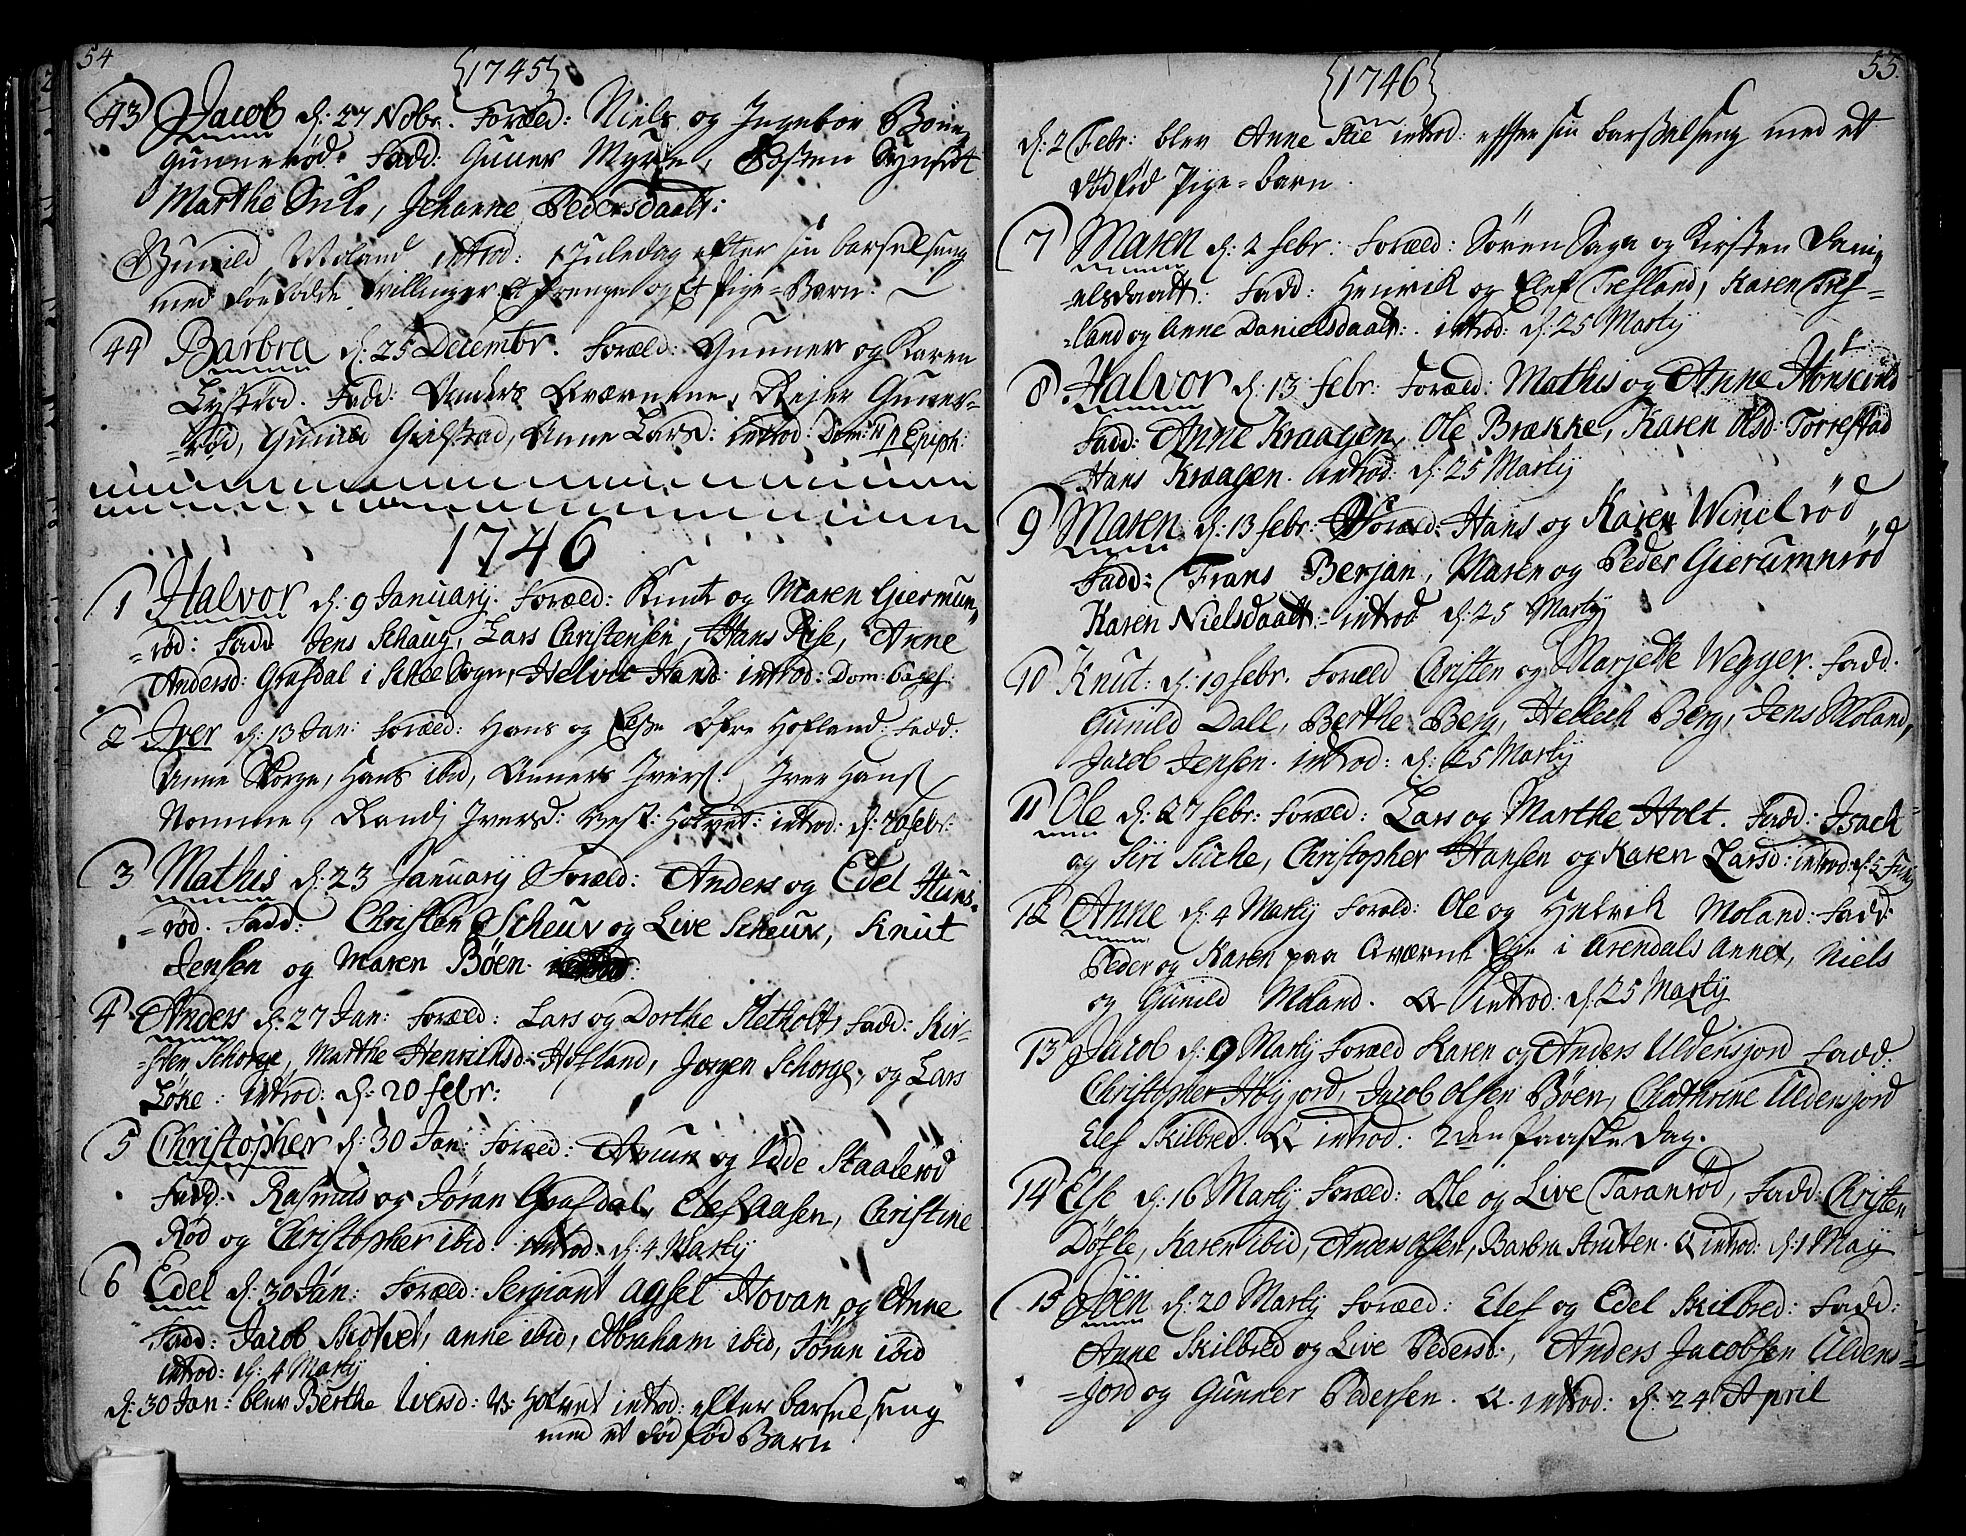 54
{1745}
43 Jacob d: 27 Nobr. Foræld: Niels og Ingebor
Gunnerød. Fadd: Gunner Mÿre,
Marthe, Jehanne Pedersdaatt:
Gunild Moland introd: 1 Juledag efter sin barselseng
med døefødde tvillinger Et Drenge og Et Pige-Barn.
44 Barbra d. 25 Decembr. Foræld: Gunner og Karen
Fadd: Anders Qværnene, Reier Gunner-
-rød, Gunild, Anne Larsd: introd: Dom: p Epiph:
1746
1 Halvor d: 9 January. Foræld: Knut og Maren Giermun,
-rød: Fadd Jens Schaug, Lars Christensen, Hans Rise, Anne
Andersd: Grafdal i Schee Sogn, introd: Dom:
2 Iver d: 13 Jan: Foræld: Hans og Øfre Hofland: Fadd:
Anne Skorge, Hans ibid, Anners Ivers: Iver Hans
Nomme, Randj Iversd: Vest: Holvet: introd: d: 20 febr:
3 Mathis d: 23 January Foræld: Anders og Edel Huns-
-rød. Fadd: Christen Scheuv og Live Scheuv, Knut
Jensen og Maren Bøen
4 Anders d: 27 Jan: Foræld: Lars og Dorthe Sletholt, Fadd: Kir-
-sten Schorge, Marthe Henrichsd: Hofland, Jørgen Schorge, og Lars
Løke: introd: d: 20 febr:
5 Christopher d: 30 Jan: Foræld: og Staalerød
Fadd: Rasmus og Jøran Grafdal, Elef Aasen, Christine
Rød og Christopher ibid: introd: d: 4 Martÿ
6 Edel d: 30 Jan: Foræld: Sergiant Axsel Hovan og Anne
Fadd: Jacob, anne ibid, Abraham ibid, Jøran ibid
introd: d: 4 Martÿ
d: 30 Jan: blev Berthe Iversd: V: Holvet introd: efter barselseng
med et død fød Barn
55.
{1746}
d: 2 Febr: blev Anne introd: effter sin barselseng med et
død fød Pige-barn.
7 Maren d: 2 febr: Foræld: Sören Saga og Kirsten Dani,
-elsdaatt: Fadd: Henrik og Elef Trefland, Karen Tref-
-land og Anne Danielsdaatt: introd: d: 25 Martÿ
8 Halvor d: 13 febr: Foræld: Mathis og Anne
Fadd: Anne Kraagen, Ole Brække, Karen Olsd: Torrestad
Hans Kraagen. introd: d: 25 Martÿ
9 Maren d: 13 febr: Foræld: Hans og Karen Winelrød
Fadd: Frans Berjan, Maren og Peder Gierumnrød
Karen Nielsdaatt: introd d: 25 Martÿ
10 Knut: d: 19 febr. Foræld Christen og Marjethe Wegger. Fadd.
Gunild Dall, Berthe Berg, Berg, Jens Moland,
Jacob Jensen. introd: d: 25 Martÿ
11 Ole d: 27 febr: Foræld: Lars og Marthe Holt. Fadd: Isach
og Siri, Christopher Hansen og Karen Larsd: introd: d: 5 Juny
12 Anne d: 4 Martÿ Foræld: Ole og Moland: Fadd:
Peder og Karen paa Qværne i Arendals Annex, Niels
og Gunild Moland. Q introd: d: 25 Martÿ
13 Jacob d: 9 Martÿ Foræld Karen og Anders Uldensjord Fadd:
Christopher Høgjord, Jacob Olsen Bøen, Chathrine Uldensjord
Elef Skilbred. Q introd: 2den Paaske Dag.
14 Else d: 16 Martÿ Foræld: Ole og Live Taranrød, Fadd: Christen
Døfle, Karen ibid, Anders Olsen, Barbra. Q introd: d: 1 Maÿ
15 Jöen d: 20 Martÿ Foræld: Elef og Edel Skilbred: Fadd:
Anne Skilbred og Live Pedersd:, Anders Jacobsen Uldens-
-jord og Gunner Pedersen. Q. introd: d: 24 April